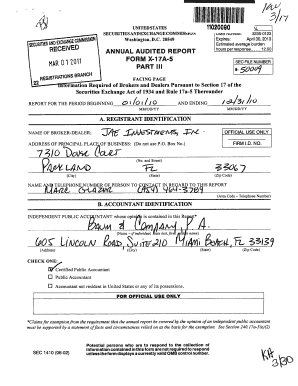 UNITED STATES
SECURITIES AND EXCHANGE COMMISSION
Washington, D.C. 20549
11020090
3235-0123
Expires: April 30, 2013
Estimated average burden
hours per response.... 12.00
SECURITIES AND EXCHANGE COMMISSION
RECEIVED
MAR 01 2011
REGISTRATIONS BRANCH
ANNUAL AUDITED REPORT
FORM X-17A-5
PART III
SEC FILE NUMBER
50009
3/17
FACING PAGE
Information Required of Brokers and Dealers Pursuant to Section 17 of the
Securities Exchange Act of 1934 and Rule 17a-5 Thereunder
REPORT FOR THE PERIOD BEGINNING 01/01/10 AND ENDING 12/31/10
MM/DD/YY MM/DD/YY
A. REGISTRANT IDENTIFICATION
NAME OF BROKER-DEALER: JAE INVESTMENTS, INC.
OFFICIAL USE ONLY
ADDRESS OF PRINCIPAL PLACE OF BUSINESS: (Do not use P.O. Box No.)
FIRM I.D. NO.
7310 Court
(No. and Street)
PARKLAND FL 33067
(City) (State) (Zip Code)
NAME AND TELEPHONE NUMBER OF PERSON TO CONTACT IN REGARD TO THIS REPORT
MARC
(Area Code - Telephone Number)
B. ACCOUNTANT IDENTIFICATION
INDEPENDENT PUBLIC ACCOUNTANT whose opinion is contained in this Report*
BAUM & COMPANY, P.A.
(Name - if individual, state last, first, middle name)
605 LINCOLN ROAD, SUITE 210 MIAMI BEACH, FL 33139
(Address) (City) (State) (Zip Code)
CHECK ONE:
Certified Public Accountant
Public Accountant
Accountant not resident in United States or any of its possessions.
FOR OFFICIAL USE ONLY
*Claims for exemption from the requirement that the annual report be covered by the opinion of an independent public accountant
must be supported by a statement of facts and circumstances relied on as the basis for the exemption. See Section 240.17a-5(e)(2)
Potential persons who are to respond to the collection of
information contained in this form are not required to respond
unless the form displays a currently valid OMB control number.
SEC 1410 (06-02)
3/30